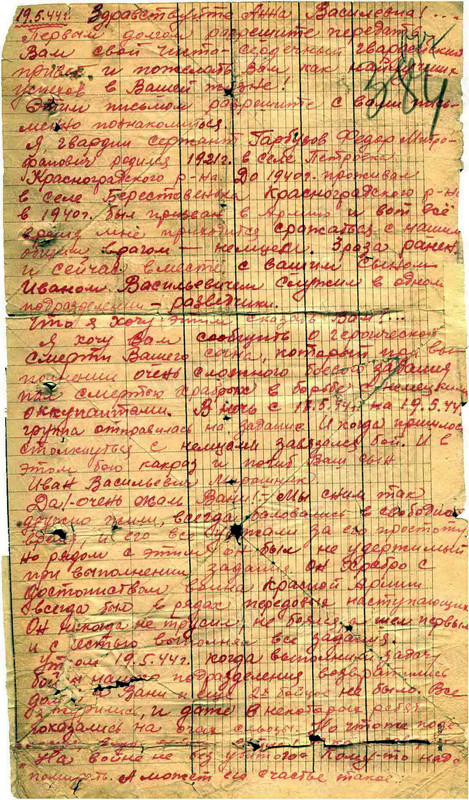 19.5.44г. Здравствуйте Анна Васильевна!...
Первым долгом разрешите передать
Вам свой чисто-сердечный гвардейский
привет и пожелать Вам как наилучших
успехов в Вашей жизне!
384
Этим письмом разрешите с вами пись-
менно познакомиться.
Я гвардии сержант Гарбузов Федор Митро-
фанович родился 1921г. в селе Петровка
Красноградского р-на. До 1940г. проживал
в селе Берестовенька Красноградского р-на
в 1940г. был призван в Армию и вот всё
время мне приходится сражаться с нашим
общим врагом — немцем. 3 раза ранен
и сейчас вместе с вашим сыном
Иваном Васильевичем служим в одном
подразделении — разведчики.
Что я хочу этим сказать Вам?...
Я хочу Вам сообщить о героической
смерти Вашего сына, который при вы-
полнении очень сложного боевого задания
пал смертью храбрых в борьбе с немецкими
оккупантами. В ночь с 18.5.44г. на 19.5.44г.
группа отправилась на задание. И когда пришлось
столкнуться с немцами завязался бой. И в
этом бою какраз и погиб Ваш сын
Иван Васильевич
Да!-очень жаль Вани!- Мы с ним так
дружно жили, всегда баловались в свободное
и его все за его простоту
но рядом с этим он был не удержимый
при выполнении задания. Он храбро с
достоинством воина Красной Армии
всегда был в рядах передовых наступающих
Он никогда не трусил, не боялся, а шел первым
и с честью выполнял все задания.
Утром 19.5.44г. когда выполнили задачу
подразделения возвратились
Вани и еще 2х бойцов не было. Все
и даже в некоторых ребят
показались на очах слезы. Но что же
На войне не без убитого. Кому-то надо
помирать. А может его счастье такое